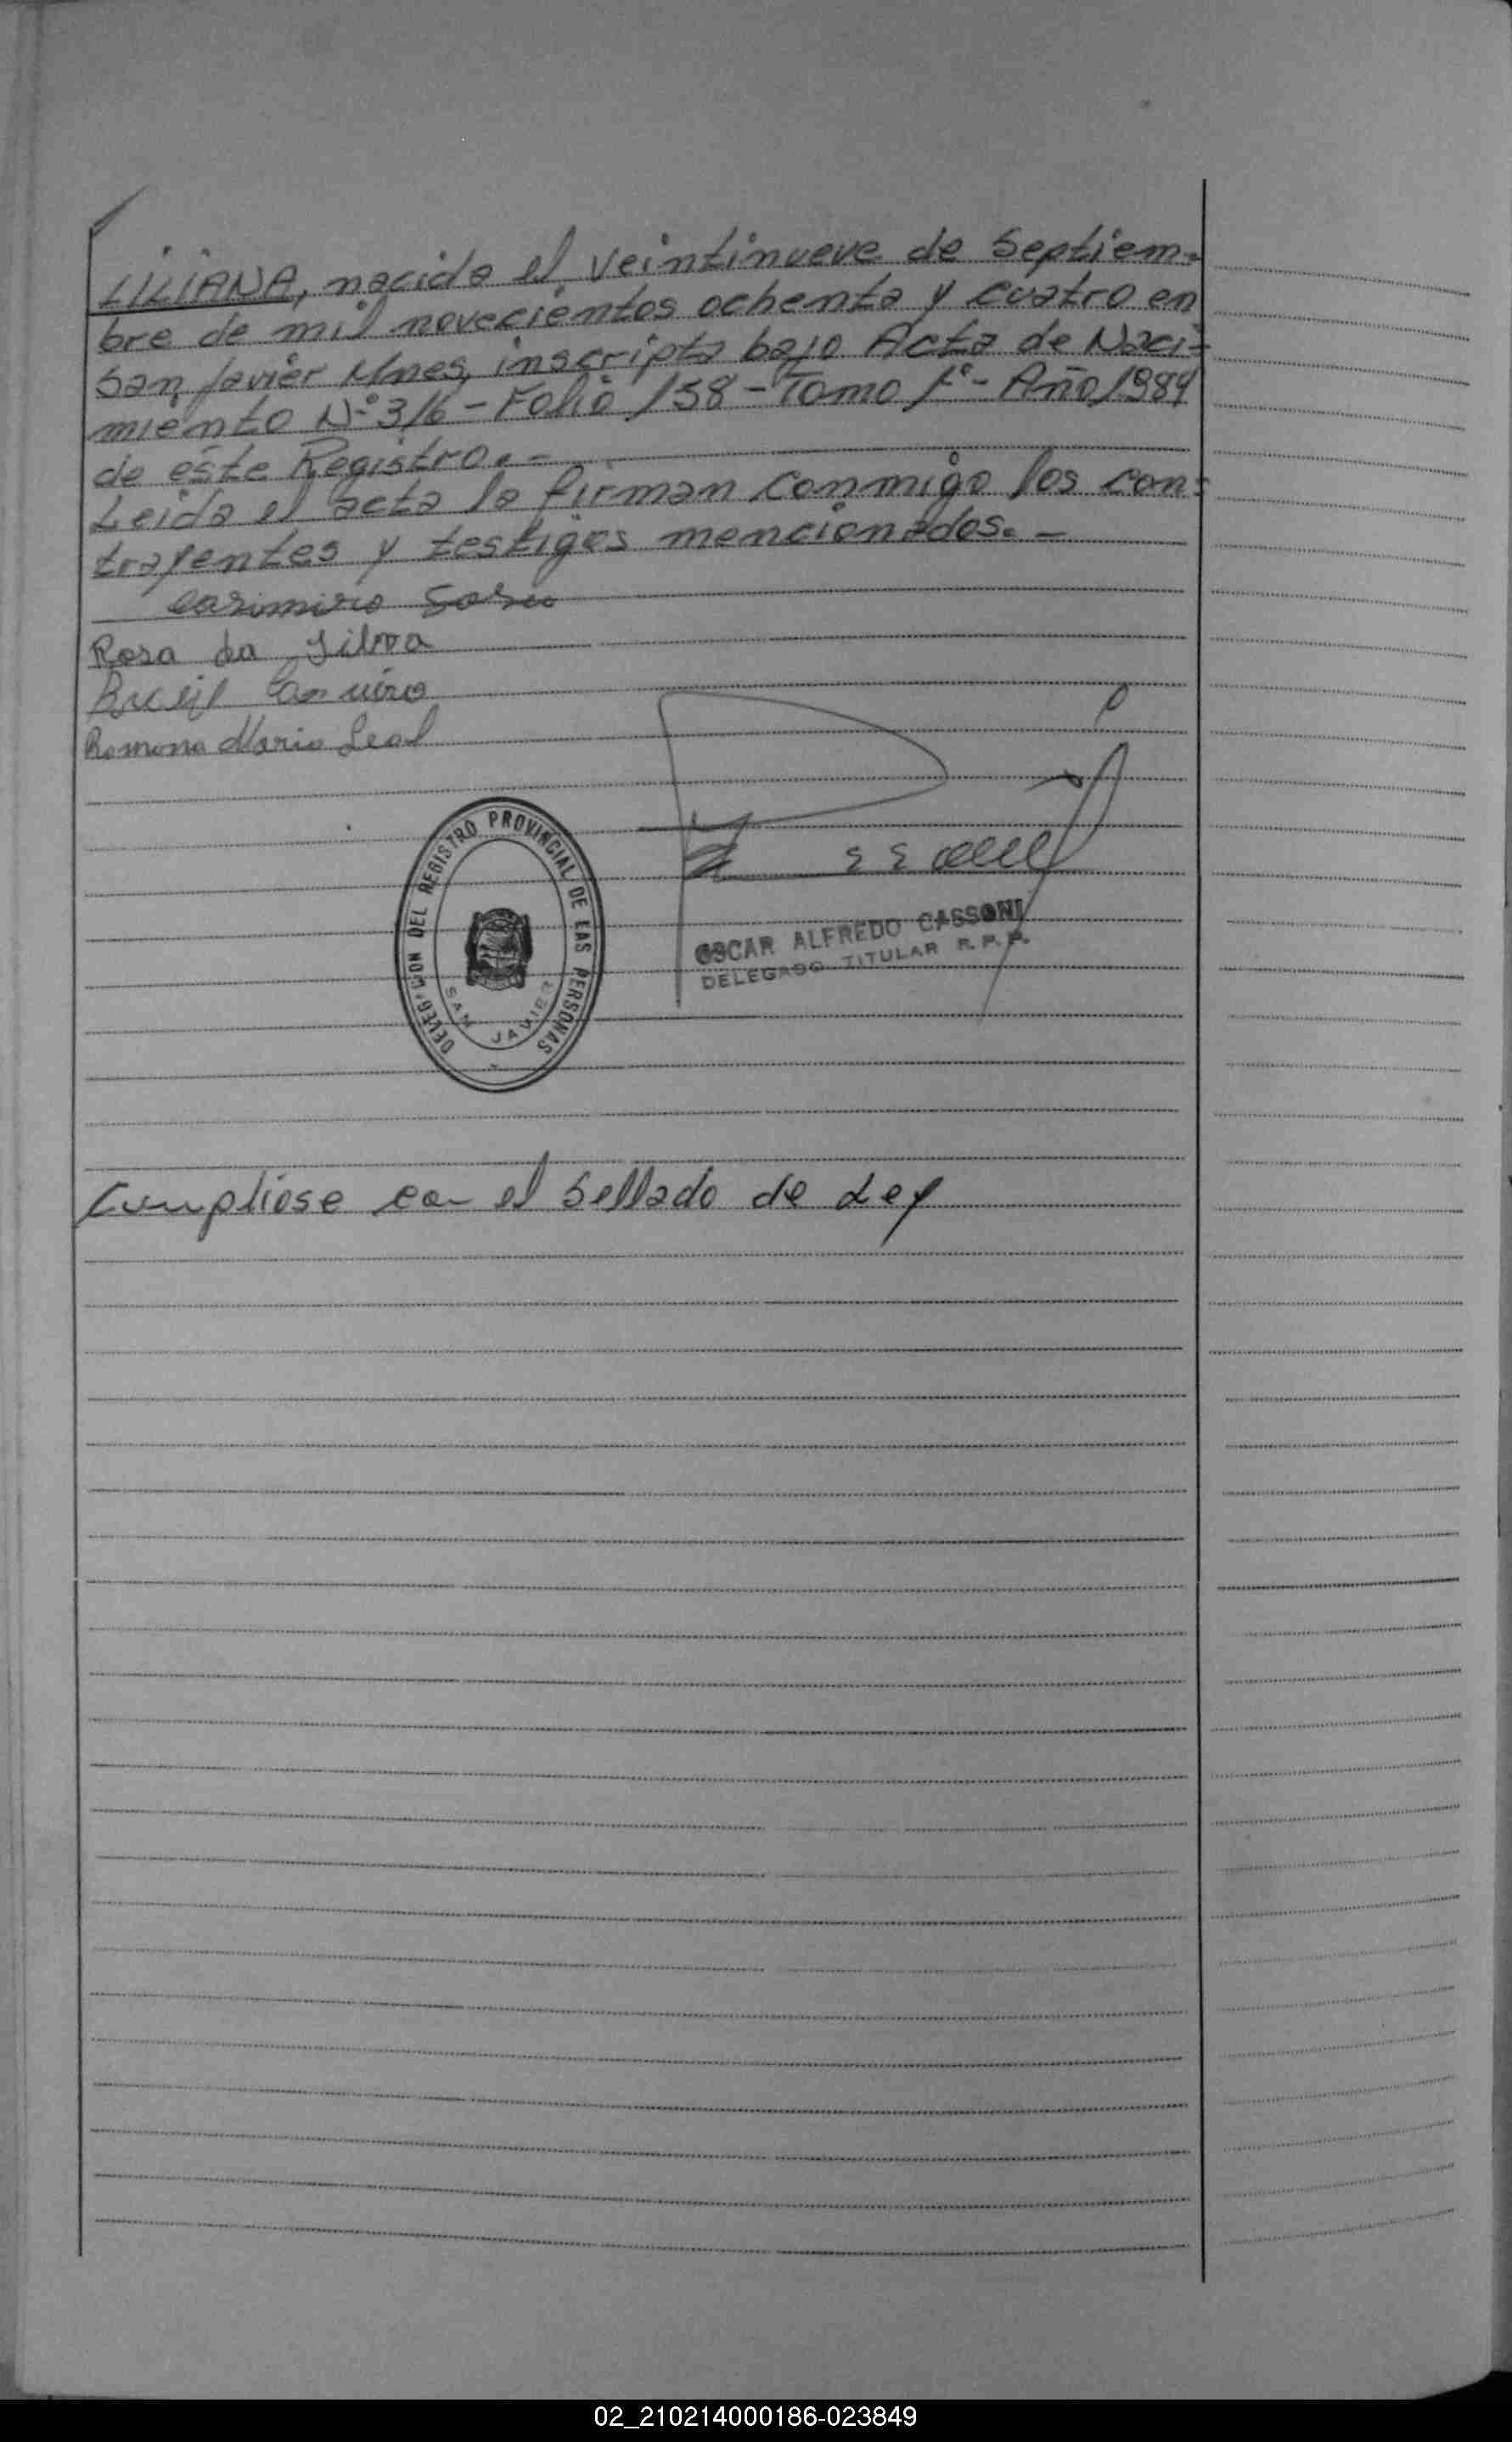 LILIANA, nacida el veintinueve de Septiem-
bre de mil novecientos ochenta y cuatro en
San Javier Mnes, inscripta bajo Acta de Naci-
miento Nº 316 - Folio 158 - Tomo 1º - Año 1984
de éste Registro. -
Leida el acta la firman conmigo los con-
trayentes y testigos mencionados. -
Casimiro
Rosa da Silva
Ramona Maria Leal
DELEGACION DEL REGISTRO PROVINCIAL DE LAS PERSONAS
SAN JAVIER
OSCAR ALFREDO CASSONI
DELEGADO TITULAR R.P.P.
Cumpliose con el Sellado de Ley
02_210214000186-023849